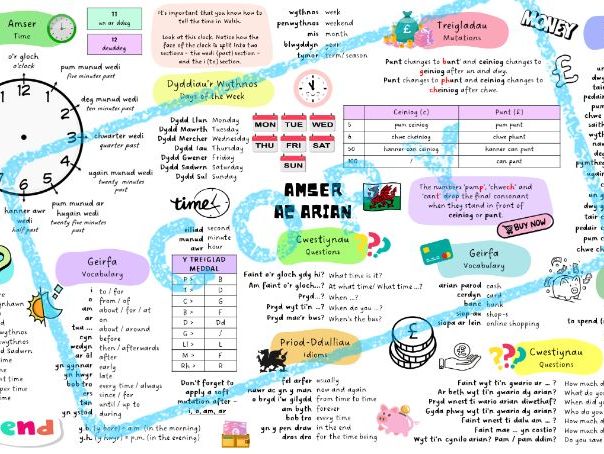 Amser
Time
11
un ar ddeg
12
deuddeg
It's important that you know how to
tell the time in Welsh.
Look at the clock. Notice how the
face of the clock is split into two
sections - the wedi (past) section -
and the i (to) section.
wythnos week
penwythnos weekend
mis month
blwyddyn year
tymor term/season
Treigladau
Mutations
MONEY
Punt changes to bunt and ceiniog changes to
geiniog after un and dwy.
Punt changes to phunt and ceiniog changes to
cheiniog after chwe.
o'r gloch
o'clock
pum munud wedi
five minutes past
deg munud wedi
ten minutes past
chwarter wedi
quarter past
ugain munud wedi
twenty minutes
past
pum munud ar
hugain wedi
twenty five
minutes past
hanner awr
wedi
half past
12
11
1
2
3
4
5
6
Dyddiau'r Wythnos
Days of the Week
Dydd Llun Monday
Dydd Mawrth Tuesday
Dydd Mercher Wednesday
Dydd Iau Thursday
Dydd Gwener Friday
Dydd Sadwrn Saturday
Dydd Sul Sunday
MON TUE WED
THU FRI SAT
SUN
Ceiniog (c) Punt (£)
5 pum ceiniog pum punt
6 chwe cheiniog chwe phunt
50 hanner can ceiniog hanner can punt
100 / can punt
AMSER
AC ARIAN
The numbers 'pump', 'chwech' and
'cant' drop the final consonant
when they stand in front of
ceiniog or punt.
BUY NOW
time!
eiliad second
munud minute
awr hour
Geirfa
Vocabulary
i to / for
o from / of
am about / for / at
ar on
tua ... about / around
cyn before
wedyn then / afterwards
ar ôl after
yn gynnar early
yn hwyr late
bob tro every time / always
ers since / for
tan until / up to
yn ystod during
Y TREIGLAD
MEDDAL
P > B
T > D
C > G
B > F
D > Dd
G > /
Ll > L
M > F
Rh > R
Don't forget to
apply a soft
mutation after -
i, o, am, ar
Cwestiynau
Questions
Faint o'r gloch ydy hi? What time is it?
Am faint o'r gloch...? At what time/ What time ...?
Pryd...? When ...?
Pryd wyt ti'n ...? When do you ...?
Pryd mae'r bus? When's the bus?
Geirfa
Vocabulary
arian parod cash
cerdyn card
banc bank
siop au shop-s
siopa ar lein online shopping
to spend
Priod-Ddulliau
Idioms
fel arfer usually
nawr ac yn y man now and again
o bryd i'w gilydd from time to time
am byth forever
bob tro every time
yn y pen draw in the end
dros dro for the time being
Cwestiynau
Questions
Faint wyt ti'n gwario ar ... ? How much d
Ar beth wyt ti'n gwario dy arian? What do yo
Pryd wnest ti wario arian diwethaf? When did y
Gyda phwy wyt ti'n gwario dy arian? Who do y
Faint wnest ti dalu am ... ? How much d
Faint mae ... yn costio? How much d
Wyt ti'n cynilo arian? Pam / pam ddim? Do you save
end
y.b. (y bore) = a.m. (in the morning)
y.h. (y hwyr) = p.m. (in the evening)